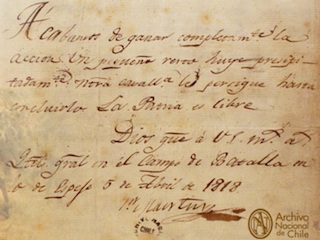 Acabamos de ganar completamte. la
accion. Un pequeño resto huye precipi-
tadamte. Nтrа cavalla. lo persigue hasta
concluirlo. La Patria es libre
Dios gue. á V.S. ms. as.
Qtel. gral en el Campo de Batalla en
lo de Espejo 5 de Abril de 1818
Sn. Martin
Archivo
Nacional
de Chile
CHILE